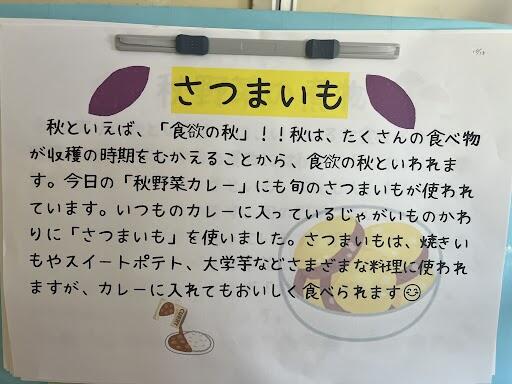 さつまいも
秋といえば、「食欲の秋」！！秋は、たくさんの食べ物
が収穫の時期をむかえることから、食欲の秋といわれま
す。今日の「秋野菜カレー」にも旬のさつまいもが使われ
ています。いつものカレーに入っているじゃがいものかわ
りに「さつまいも」を使いました。さつまいもは、焼きい
もやスイートポテト、大学芋などさまざまな料理に使われ
ますが、カレーに入れてもおいしく食べられます😊